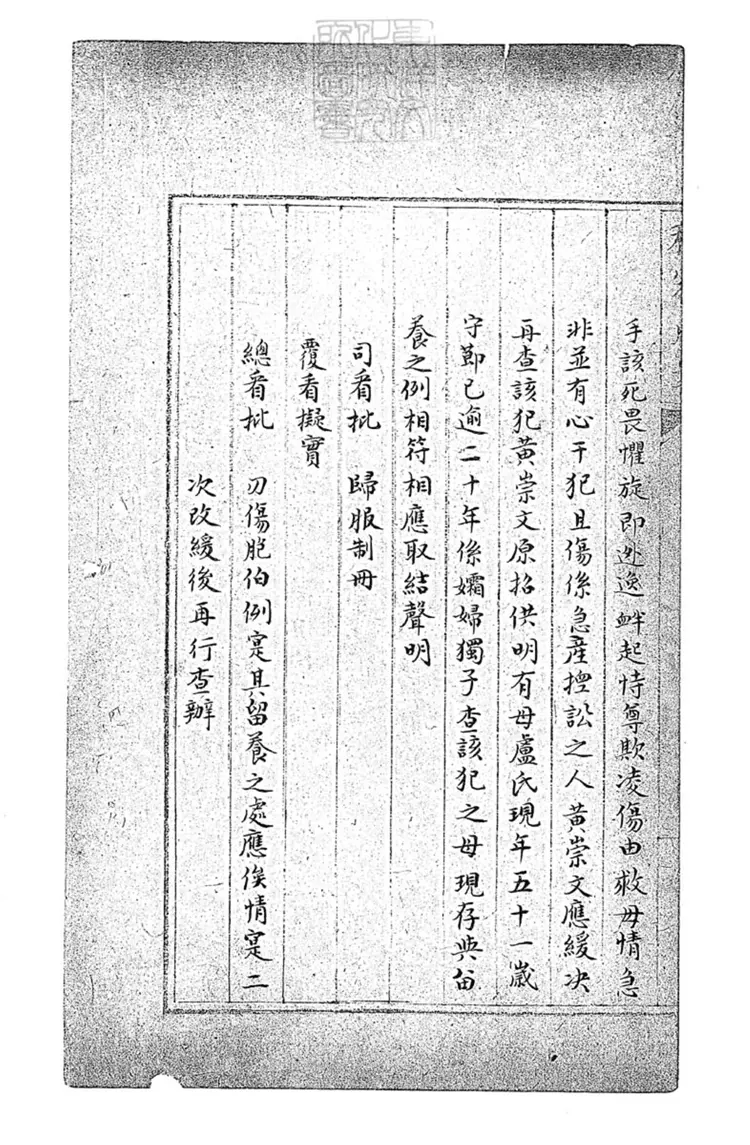 手該死畏懼旋即逃逸衅起恃尊欺凌傷由救母情急
非並有心干犯且傷係急產控訟之人黃崇文應緩决
再查該犯黃崇文原招供明有母盧氏現年五十一歲
守節已逾二十年係孀婦獨子查該犯之母現存與留
養之例相符相應取結聲明
司看批　歸服制冊
覆看擬實
總看批　刃傷胞伯例寔其留養之處應俟情寔二
次改緩後再行查辦